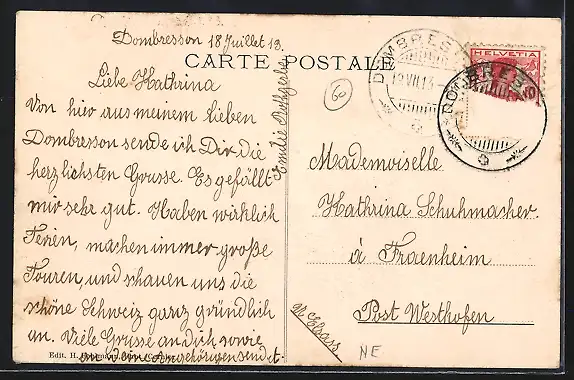 Dombresson 18 Juillet 13.
CARTE POSTALE
Liebe Kathrina
Von hier aus meinem lieben
Dombresson sende ich Dir die
herzlichsten Grusse. Es gefällt
mir sehr gut. Haben wirklich
Ferien, machen immer große
Touren, und schauen uns die
schöne Schweiz ganz gründlich
an. Viele Grusse an dich sowie
an deine Angehörigen sendet.
Emilie
Edit. H.
HELVETIA
DOMBRESSON
VII 13
60
Mademoiselle
Kathrina Schuhmacher
à Fraenheim
Post Westhofen
Elsass
NE